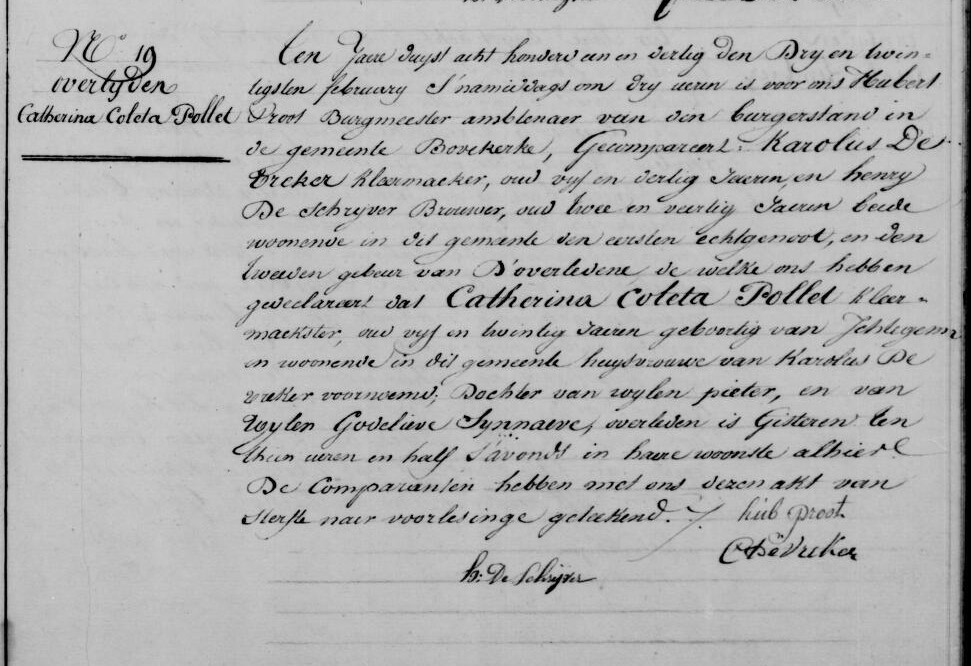 N.º 19
overlyden
Catherina Coleta Pollet
Ten Jaere duyst acht honderd een en dertig den Dry en twin-
tigsten february S'namiddags om dry ueren is voor ons Hubert
Proot Burgmeester ambtenaer van den burgerstand in
de gemeente Bovekerke, Gecompareert: Karolus De
Vreker Kleermaeker, oud vyf en dertig Jaeren, en henry
De Schryver Brouwer, oud twee en veertig Jaeren beide
woonende in dit gemeente den eersten echtgenoot, en den
tweeden gebeur van D'overledene de welke ons hebben
gedeclareert dat Catherina Coleta Pollet Kleer-
maekster, oud vyf en twintig Jaeren geboortig van Ichtegem
en woonende in dit gemeente huysvrouwe van Karolus De
Vreker voornoemd; Dochter van wylen pieter, en van
Wylen Godelieve Synnaeve, overleden is Gisteren ten
thien ueren en half S'avonds in haere woonste alhier
De Comparanten hebben met ons dezen akt van
sterfte naer voorlesinge geteekend. /.
hub proot
C De Vreker
h: De Schryver